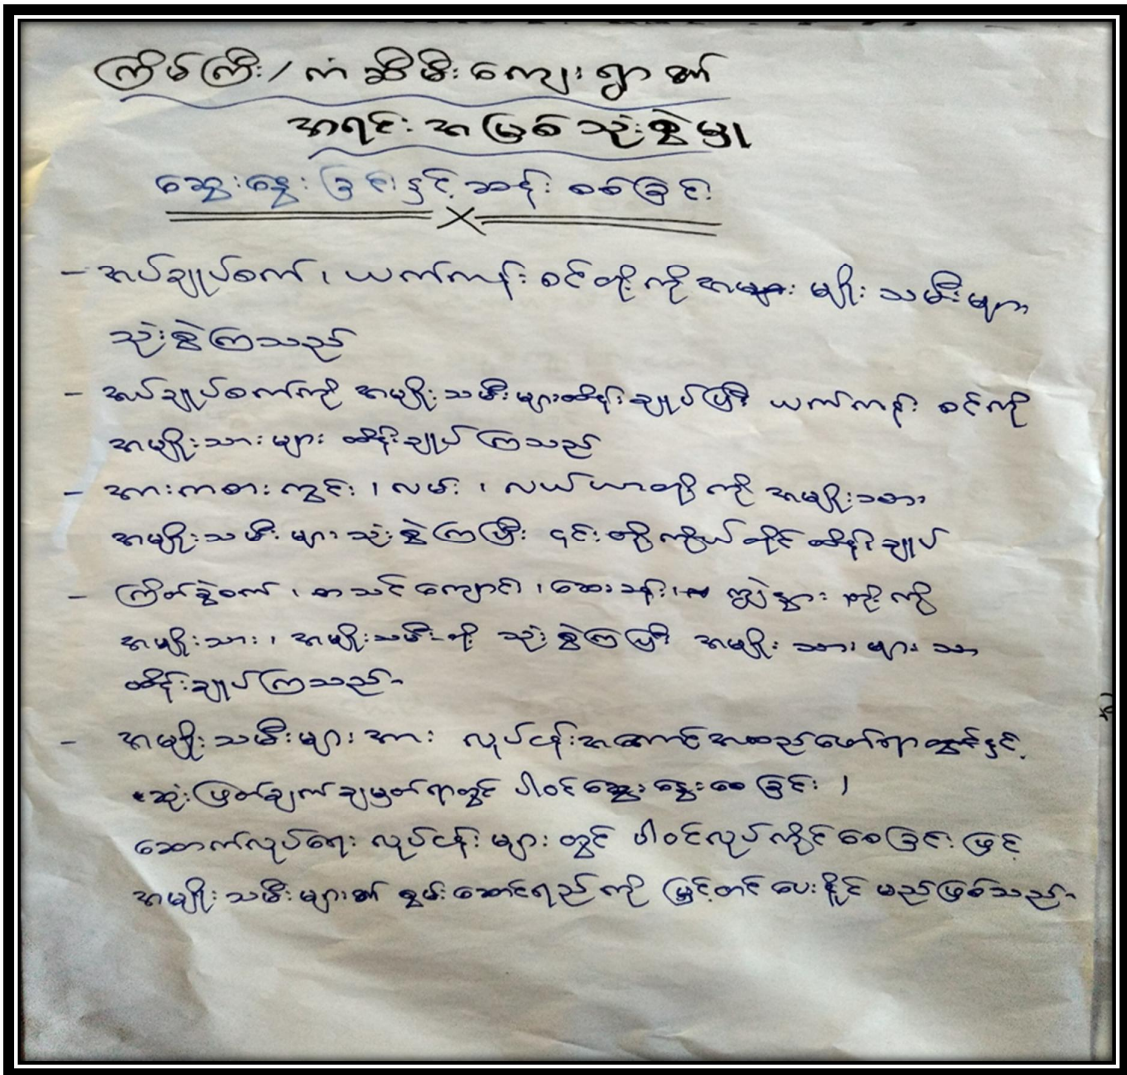 ကြိမ်ကြီး/ကံဆီမီးကျေးရွာ၏
အရင်းအမြစ်သုံးစွဲမှု
ဆွေးနွေးခြင်းနှင့်ဆန်းစစ်ခြင်း
- အပ်ချုပ်စက်၊ ယက်ကန်းစင်တို့ကို အမျိုးသမီးများ
သုံးစွဲကြသည်
- အပ်ချုပ်စက်ကို အမျိုးသမီးများထိန်းချုပ်ပြီး ယက်ကန်း စင်ကို
အမျိုးသားများ ထိန်းချုပ်ကြသည်
- အားကစားကွင်း၊ လမ်း၊ လယ်ယာတို့ကို အမျိုးသား၊
အမျိုးသမီးများသုံးစွဲကြပြီး ၎င်းတို့ကိုယ်တိုင် ထိန်းချုပ်
- ကြိတ်ခွဲစက်၊ စာသင်ကျောင်း၊ ဆေးခန်း၊ ကျွဲနွား တို့ကို
အမျိုးသား၊ အမျိုးသမီးတို့ သုံးစွဲကြပြီး အမျိုးသားများသာ
ထိန်းချုပ်ကြသည်-
- အမျိုးသမီးများအား လုပ်ငန်းအကောင်အထည်ဖော်ရာတွင်နှင့်
ဆုံးဖြတ်ချက်ချမှတ်ရာတွင် ပါဝင်ဆွေးနွေးစေခြင်း၊
ဆောက်လုပ်ရေး လုပ်ငန်းများတွင် ပါဝင်လုပ်ကိုင်စေခြင်းဖြင့်
အမျိုးသမီးများ၏ စွမ်းဆောင်ရည်ကို မြှင့်တင်ပေးနိုင်မည်ဖြစ်သည်-